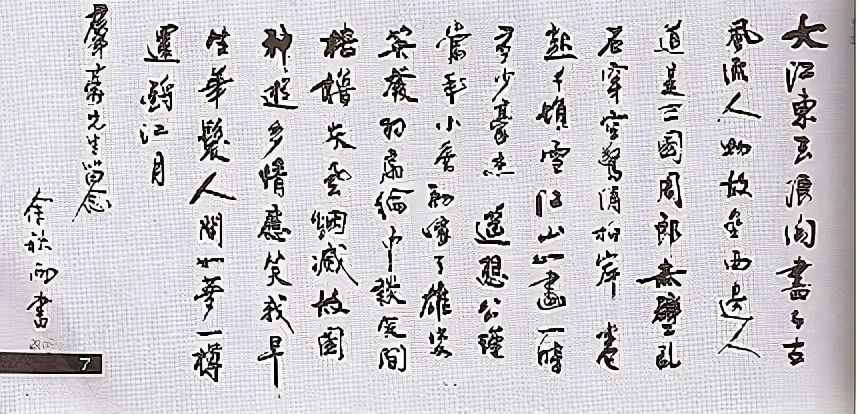 大江東去浪淘盡千古
風流人物故壘西邊人
道是三國周郎赤壁亂
石穿空驚濤拍岸卷
起千堆雪江山如畫一時
多少豪杰遙想公瑾
當年小喬初嫁了雄姿
英發羽扇綸巾談笑間
檣櫓灰飛烟滅故國
神遊多情應笑我早
生華髮人間如夢一樽
還酹江月
先生留念
余秋雨書
7